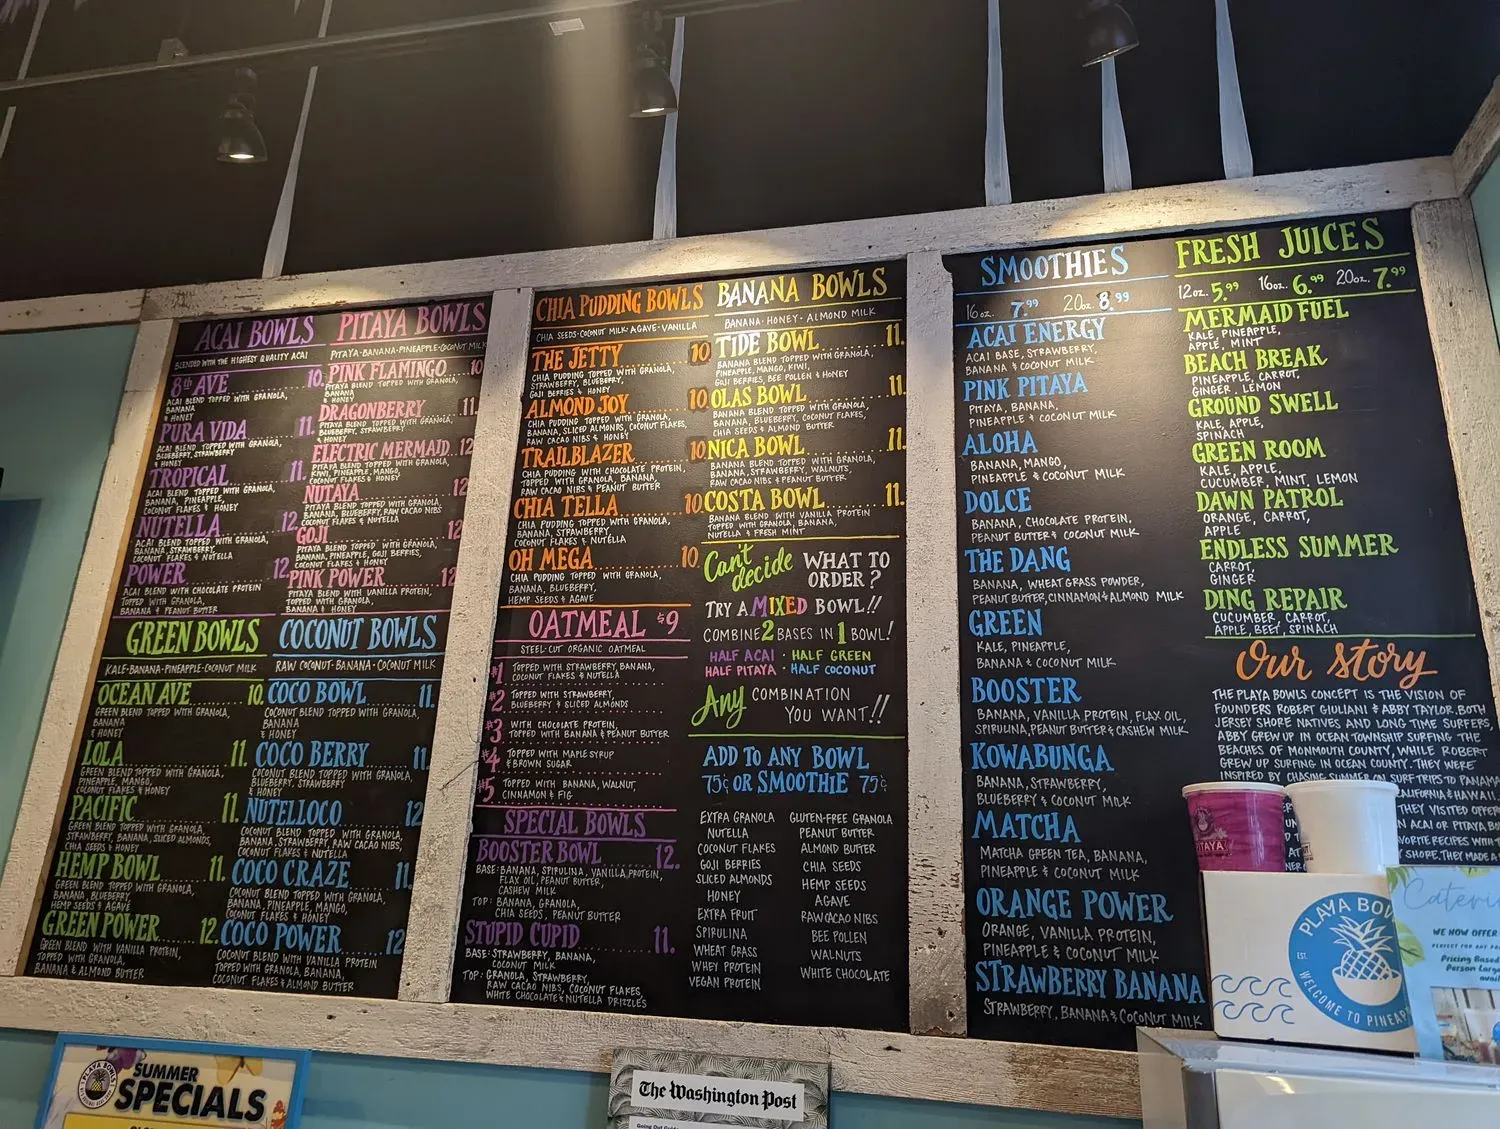 ACAI BOWLS
BLENDED WITH THE HIGHEST QUALITY ACAI
8th AVE 10.
ACAI BLEND TOPPED WITH GRANOLA,
BANANA
& HONEY
PURA VIDA 11.
ACAI BLEND TOPPED WITH GRANOLA,
BLUEBERRY, STRAWBERRY
& HONEY
TROPICAL 11.
ACAI BLEND TOPPED WITH GRANOLA,
BANANA, PINEAPPLE,
COCONUT FLAKES & HONEY
NUTELLA 12.
ACAI BLEND TOPPED WITH GRANOLA,
BANANA, STRAWBERRY,
COCONUT FLAKES & NUTELLA
POWER 12.
ACAI BLEND WITH CHOCOLATE PROTEIN
TOPPED WITH GRANOLA,
BANANA & PEANUT BUTTER
PITAYA BOWLS
PITAYA·BANANA·PINEAPPLE·COCONUT MILK
PINK FLAMINGO 10
PITAYA BLEND TOPPED WITH GRANOLA,
BANANA
& HONEY
DRAGONBERRY 11.
PITAYA BLEND TOPPED WITH GRANOLA,
BLUEBERRY, STRAWBERRY
& HONEY
ELECTRIC MERMAID 12
PITAYA BLEND TOPPED WITH GRANOLA,
KIWI, PINEAPPLE, MANGO,
COCONUT FLAKES & HONEY
NUTAYA 12
PITAYA BLEND TOPPED WITH GRANOLA,
BANANA, BLUEBERRY, RAW CACAO NIBS
COCONUT FLAKES & NUTELLA
GOJI 12
PITAYA BLEND TOPPED WITH GRANOLA,
BANANA, PINEAPPLE, GOJI BERRIES,
COCONUT FLAKES & HONEY
PINK POWER 12
PITAYA BLEND WITH VANILLA PROTEIN,
TOPPED WITH GRANOLA,
BANANA & HONEY
GREEN BOWLS
KALE·BANANA·PINEAPPLE·COCONUT MILK
OCEAN AVE 10.
GREEN BLEND TOPPED WITH GRANOLA,
BANANA
& HONEY
LOLA 11.
GREEN BLEND TOPPED WITH GRANOLA,
PINEAPPLE, MANGO,
COCONUT FLAKES & HONEY
PACIFIC 11.
GREEN BLEND TOPPED WITH GRANOLA,
STRAWBERRY, BANANA, SLICED ALMONDS,
CHIA SEEDS & HONEY
HEMP BOWL 11.
GREEN BLEND TOPPED WITH GRANOLA,
BANANA, BLUEBERRY,
HEMP SEEDS & AGAVE
GREEN POWER 12.
GREEN BLEND WITH VANILLA PROTEIN,
TOPPED WITH GRANOLA,
BANANA & ALMOND BUTTER
COCONUT BOWLS
RAW COCONUT·BANANA·COCONUT MILK
COCO BOWL 11.
COCONUT BLEND TOPPED WITH GRANOLA,
BANANA
& HONEY
COCO BERRY 11.
COCONUT BLEND TOPPED WITH GRANOLA,
BLUEBERRY, STRAWBERRY
& HONEY
NUTELLOCO 12
COCONUT BLEND TOPPED WITH GRANOLA,
BANANA, STRAWBERRY, RAW CACAO NIBS,
COCONUT FLAKES & NUTELLA
COCO CRAZE 11.
COCONUT BLEND TOPPED WITH GRANOLA,
BANANA, PINEAPPLE, MANGO,
COCONUT FLAKES & HONEY
COCO POWER 12
COCONUT BLEND WITH VANILLA PROTEIN
TOPPED WITH GRANOLA, BANANA,
COCONUT FLAKES & ALMOND BUTTER
CHIA PUDDING BOWLS
CHIA SEEDS·COCONUT MILK·AGAVE·VANILLA
THE JETTY 10
CHIA PUDDING TOPPED WITH GRANOLA,
STRAWBERRY, BLUEBERRY,
GOJI BERRIES & HONEY
ALMOND JOY 10
CHIA PUDDING TOPPED WITH GRANOLA,
BANANA, SLICED ALMONDS, COCONUT FLAKES,
RAW CACAO NIBS & HONEY
TRAILBLAZER 10
CHIA PUDDING WITH CHOCOLATE PROTEIN,
TOPPED WITH GRANOLA, BANANA,
RAW CACAO NIBS & PEANUT BUTTER
CHIA TELLA 10
CHIA PUDDING TOPPED WITH GRANOLA,
BANANA, STRAWBERRY,
COCONUT FLAKES & NUTELLA
OH MEGA 10
CHIA PUDDING TOPPED WITH GRANOLA,
BANANA, BLUEBERRY,
HEMP SEEDS & AGAVE
OATMEAL $9
STEEL-CUT ORGANIC OATMEAL
#1 TOPPED WITH STRAWBERRY, BANANA,
COCONUT FLAKES & NUTELLA
#2 TOPPED WITH STRAWBERRY,
BLUEBERRY & SLICED ALMONDS
#3 WITH CHOCOLATE PROTEIN,
TOPPED WITH BANANA & PEANUT BUTTER
#4 TOPPED WITH MAPLE SYRUP
& BROWN SUGAR
#5 TOPPED WITH BANANA, WALNUT,
CINNAMON & FIG
SPECIAL BOWLS
BOOSTER BOWL 12.
BASE: BANANA, SPIRULINA, VANILLA PROTEIN,
FLAX OIL, PEANUT BUTTER,
CASHEW MILK
TOP: BANANA, GRANOLA,
CHIA SEEDS, PEANUT BUTTER
STUPID CUPID 11.
BASE: STRAWBERRY, BANANA,
COCONUT MILK
TOP: GRANOLA, STRAWBERRY,
RAW CACAO NIBS, COCONUT FLAKES,
WHITE CHOCOLATE & NUTELLA DRIZZLES
BANANA BOWLS
BANANA·HONEY·ALMOND MILK
TIDE BOWL 11.
BANANA BLEND TOPPED WITH GRANOLA,
PINEAPPLE, MANGO, KIWI,
GOJI BERRIES, BEE POLLEN & HONEY
OLAS BOWL 11.
BANANA BLEND TOPPED WITH GRANOLA,
BANANA, BLUEBERRY, COCONUT FLAKES,
CHIA SEEDS & ALMOND BUTTER
NICA BOWL 11.
BANANA BLEND TOPPED WITH GRANOLA,
BANANA, STRAWBERRY, WALNUTS,
RAW CACAO NIBS & PEANUT BUTTER
COSTA BOWL 11.
BANANA BLEND WITH VANILLA PROTEIN
TOPPED WITH GRANOLA, BANANA,
NUTELLA & FRESH MINT
Can't decide WHAT TO
ORDER?
TRY A MIXED BOWL!!
COMBINE 2 BASES IN 1 BOWL!
HALF ACAI · HALF GREEN
HALF PITAYA · HALF COCONUT
Any COMBINATION
YOU WANT!!
ADD TO ANY BOWL
75¢ OR SMOOTHIE 75¢
EXTRA GRANOLA
NUTELLA
COCONUT FLAKES
GOJI BERRIES
SLICED ALMONDS
HONEY
EXTRA FRUIT
SPIRULINA
WHEAT GRASS
WHEY PROTEIN
VEGAN PROTEIN
GLUTEN-FREE GRANOLA
PEANUT BUTTER
ALMOND BUTTER
CHIA SEEDS
HEMP SEEDS
AGAVE
RAW CACAO NIBS
BEE POLLEN
WALNUTS
WHITE CHOCOLATE
SMOOTHIES
16oz. 7.99 20oz. 8.99
ACAI ENERGY
ACAI BASE, STRAWBERRY,
BANANA & COCONUT MILK
PINK PITAYA
PITAYA, BANANA,
PINEAPPLE & COCONUT MILK
ALOHA
BANANA, MANGO,
PINEAPPLE & COCONUT MILK
DOLCE
BANANA, CHOCOLATE PROTEIN,
PEANUT BUTTER & COCONUT MILK
THE DANG
BANANA, WHEAT GRASS POWDER,
PEANUT BUTTER, CINNAMON & ALMOND MILK
GREEN
KALE, PINEAPPLE,
BANANA & COCONUT MILK
BOOSTER
BANANA, VANILLA PROTEIN, FLAX OIL,
SPIRULINA, PEANUT BUTTER & CASHEW MILK
KOWABUNGA
BANANA, STRAWBERRY,
BLUEBERRY & COCONUT MILK
MATCHA
MATCHA GREEN TEA, BANANA,
PINEAPPLE & COCONUT MILK
ORANGE POWER
ORANGE, VANILLA PROTEIN,
PINEAPPLE & COCONUT MILK
STRAWBERRY BANANA
STRAWBERRY, BANANA & COCONUT MILK
FRESH JUICES
12oz. 5.99 16oz. 6.99 20oz. 7.99
MERMAID FUEL
KALE, PINEAPPLE,
APPLE, MINT
BEACH BREAK
PINEAPPLE, CARROT,
GINGER LEMON
GROUND SWELL
KALE, APPLE,
SPINACH
GREEN ROOM
KALE, APPLE,
CUCUMBER, MINT, LEMON
DAWN PATROL
ORANGE, CARROT,
APPLE
ENDLESS SUMMER
CARROT,
GINGER
DING REPAIR
CUCUMBER, CARROT,
APPLE, BEET, SPINACH
Our story
THE PLAYA BOWLS CONCEPT IS THE VISION OF
FOUNDERS ROBERT GIULIANI & ABBY TAYLOR. BOTH
JERSEY SHORE NATIVES AND LONG TIME SURFERS,
ABBY GREW UP IN OCEAN TOWNSHIP SURFING THE
BEACHES OF MONMOUTH COUNTY, WHILE ROBERT
GREW UP SURFING IN OCEAN COUNTY. THEY WERE
INSPIRED BY CHASING SUMMER ON SURF TRIPS TO PANAMA
CALIFORNIA & HAWAII
THEY VISITED OFFERED
AN ACAI OR PITAYA BO
RECIPES WITH
SHORE. THEY MADE A
PITAYA
PLAYA BOW
EST.
WELCOME TO PINEAP
Caterin
WE NOW OFFER
PERFECT FOR ANY
Pricing Based
Person Large
avail
SUMMER
SPECIALS
PLAYA BOWLS
The Washington Post